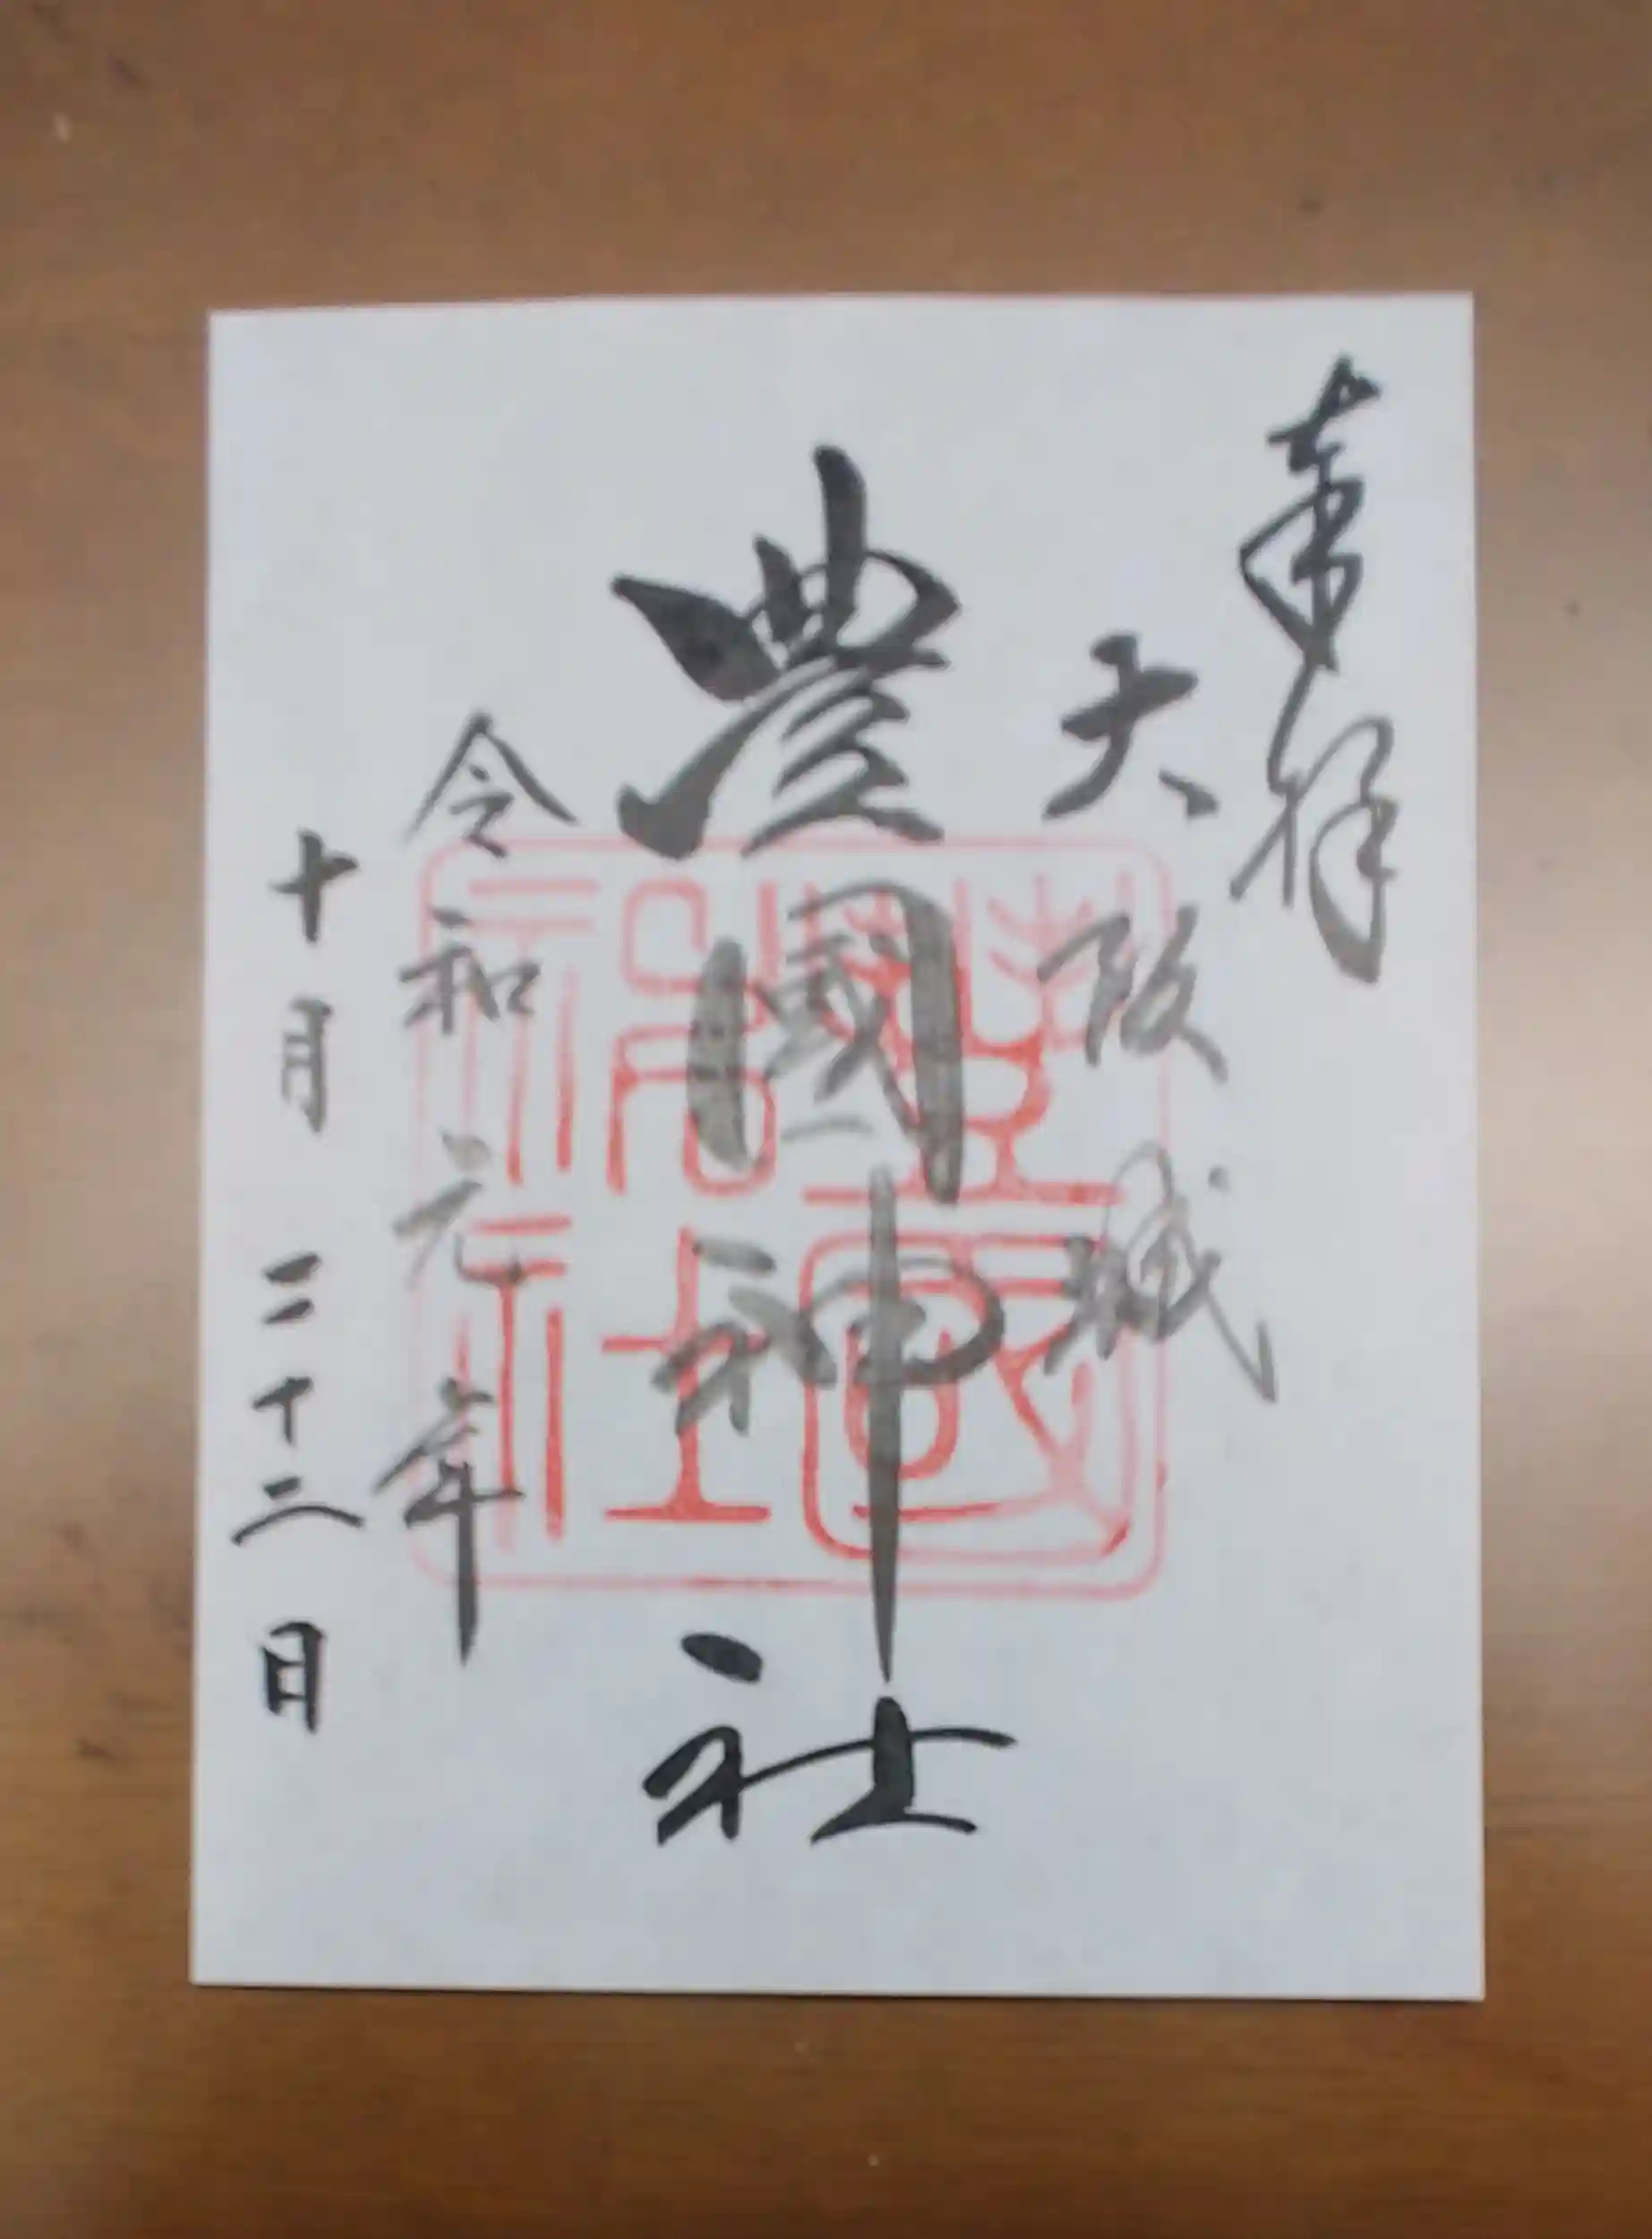 奉拝
大阪城
豊國神社
令和元年
十月二十二日
豊國神社